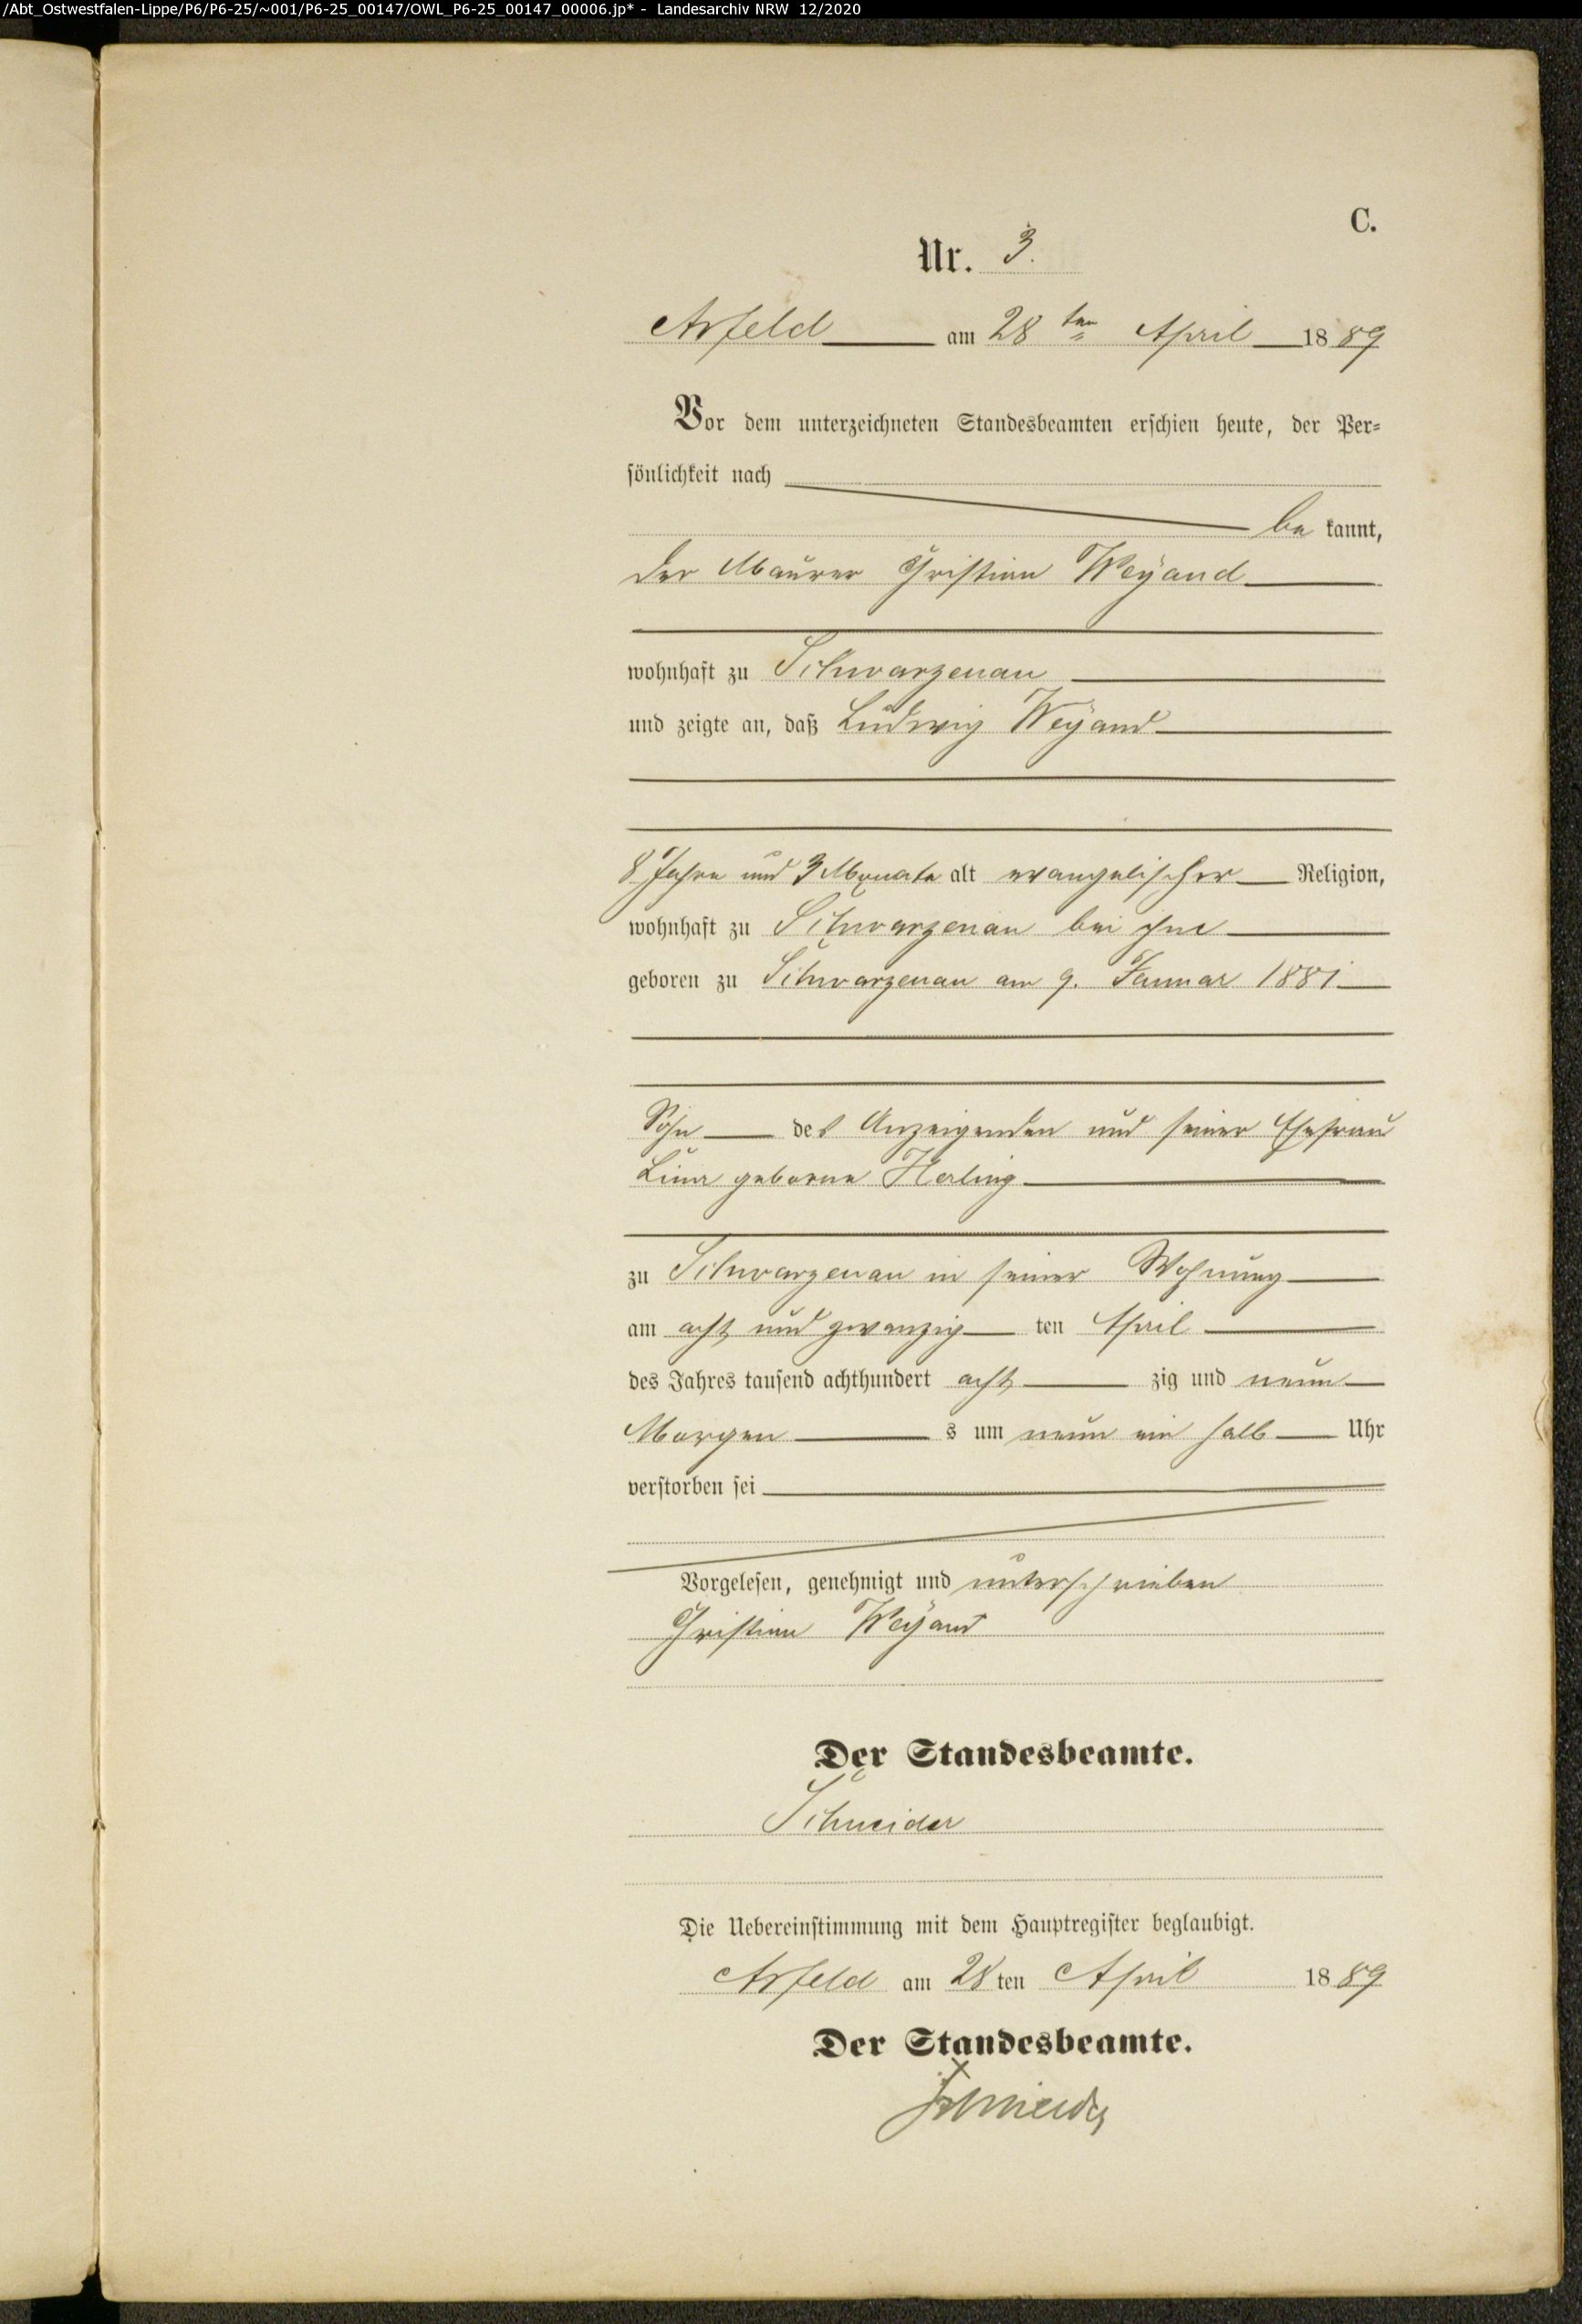 /Abt_Ostwestfalen-Lippe/P6/P6-25/~001/P6-25_00147/OWL_P6-25_00147_00006.jp* - Landesarchiv NRW 12/2020
C.
Nr. 3.
Arfeld am 28 ten April 1889
Vor dem unterzeichneten Standesbeamten erschien heute, der Per-
sönlichkeit nach
be kannt,
der Maurer Christian Weyand
wohnhaft zu Schwarzenau
und zeigte an, daß Ludwig Weyand
8 Jahre und 3 Monate alt evangelischer Religion,
wohnhaft zu Schwarzenau bei ihm
geboren zu Schwarzenau am 9. Januar 1881
Sohn des Anzeigenden und seiner Ehefrau
geborne
zu Schwarzenau in seiner Wohnung
am acht und zwanzig ten April
des Jahres tausend achthundert acht zig und neun
Morgen s um neun ein halb Uhr
verstorben sei
Vorgelesen, genehmigt und unterschrieben
Christian Weyand
Der Standesbeamte.
Schneider
Die Uebereinstimmung mit dem Hauptregister beglaubigt.
Arfeld am 28 ten April 1889
Der Standesbeamte.
Schneider